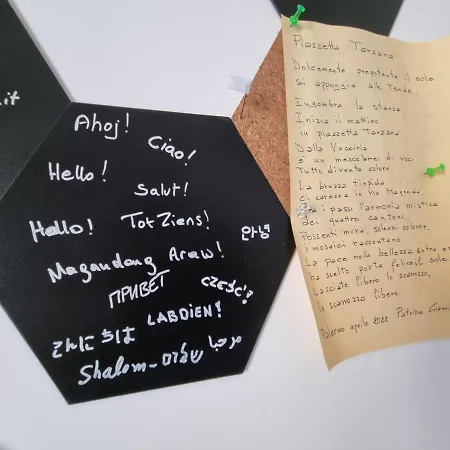 .it
Ahoj!
Ciao!
Hello!
Salut!
Hello!
Tot Ziens!
안녕
Magandang Araw!
ПРИВЕТ
CZEŚĆ?
LABDIEN!
こんにちは
مرحبا
Shalom - שלום
Piazzetta Tarzanà
Dolcemente prepotente il sole
si appoggia alle tende.
Ingombra la stanza
Inizia il mattino
in piazzetta Tarzanà
Dalla Vucciria
è un mescolarsi di voci
Tutto diventa colore
La brezza tiepida
ci carezza in via Maqueda
i passi l'armonia mistica
dei quattro cantoni.
Possenti mura, solenni colonne,
i mosaici raccontano.
La pace nella bellezza
ha scelto porta Felice
Lasciate libero lo scarrozzo,
lo scarrozzo libero.
Palermo aprile 2022 Patrizia